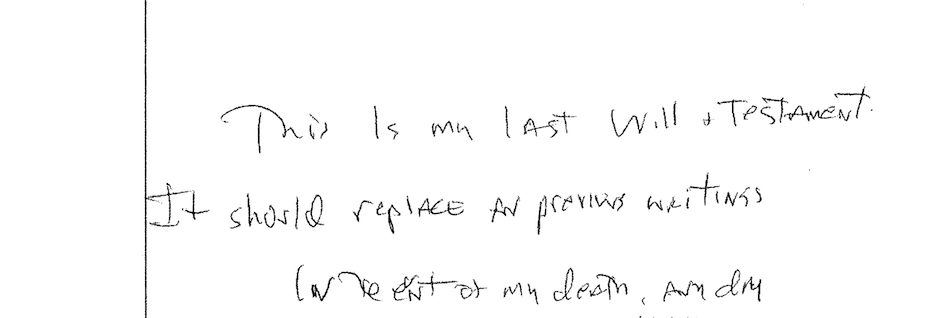 This Is my lAst Will + TesTAmeNT.
It should replACE AN previous writiNgs
IN The of my death,